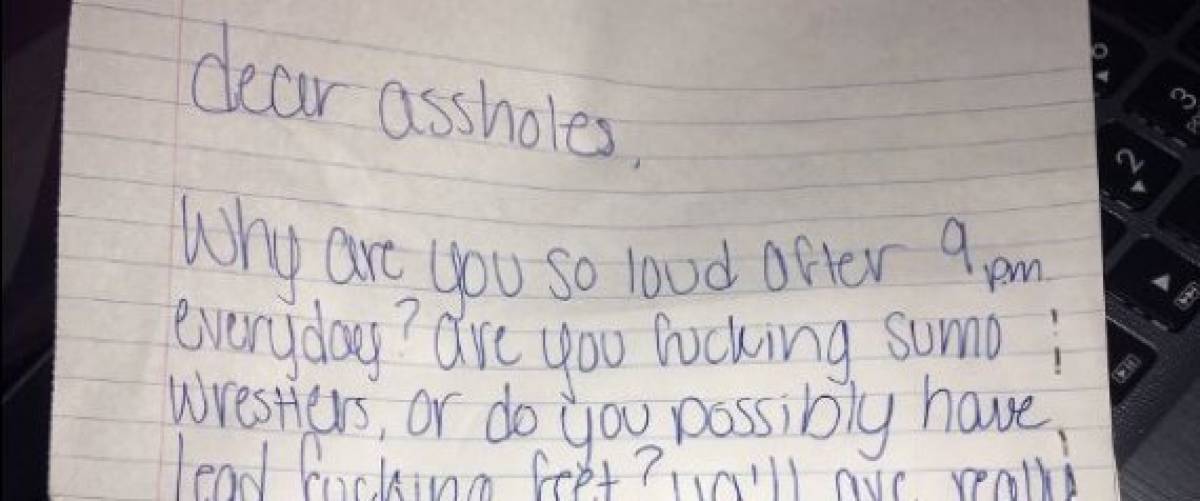 dear assholes,
Why are you so loud after 9pm
everyday? are you fucking sumo
wrestlers, or do you possibly have
lead fucking feet? ya'll are really
3
2